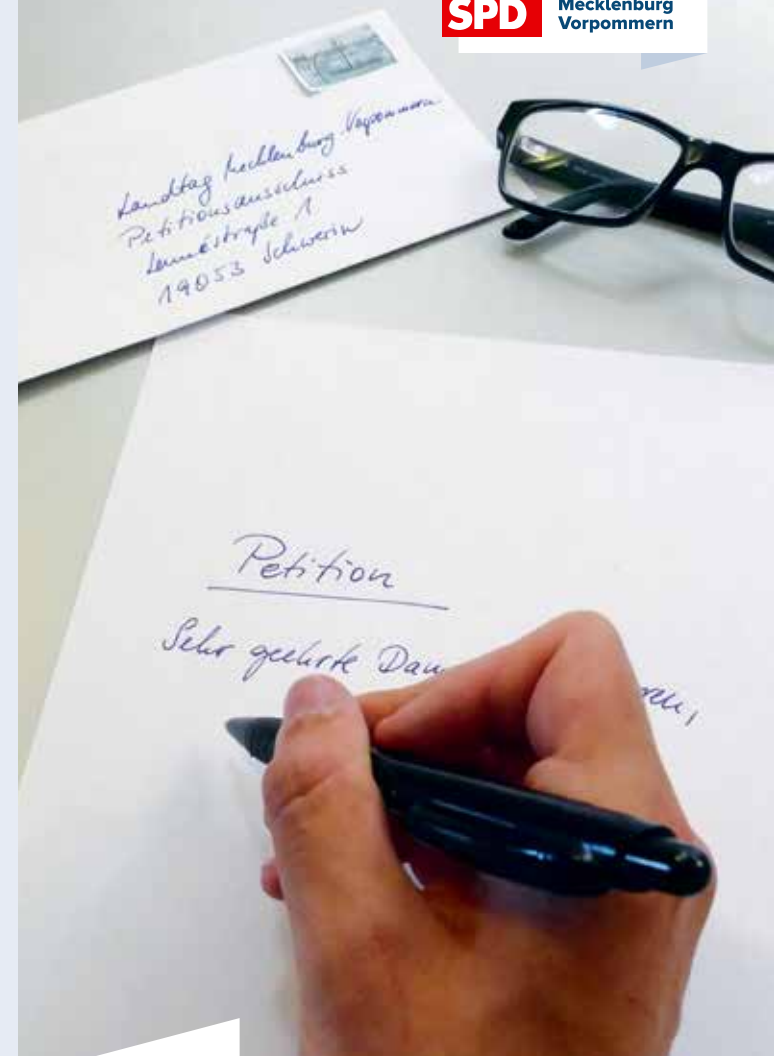 SPD Mecklenburg
Vorpommern
Landtag Mecklenburg-Vorpommern
Petitionsausschuss
Lennéstraße 1
19053 Schwerin
Petition
Sehr geehrte